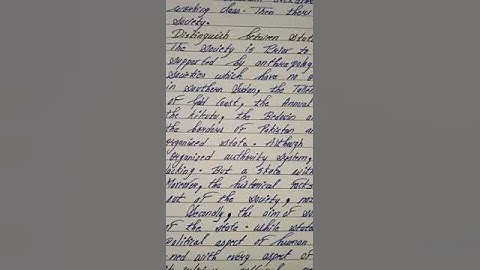 working class. Then there
society.
Distinguish between state
The society is Prior to
supported by anthropolog
societies which have no o
in Southern Sudan, the
of East Coast, the Annual
the Kituts, the Bedouin
the borders of Pakistan a
organized state. Although
organized authority system,
lacking. But a state with
Moreover, the historical facts
out of the society, no
Secondly, the aim of so
of the state. while state
political aspect of human
ned with every aspect of